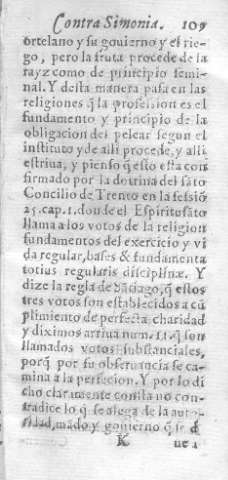 Contra Simonia. 109
ortelano y su gouierno y el rie-
go, pero la fruta procede de la
rayz como de principio semi-
nal. Y desta manera pasa en las
religiones q̃ la profession es el
fundamento y principio de la
obligacion del pelear segun el
instituto y de alli procede, y alli
estriua, y pienso q̃ esto esta con
firmado por la dotrina del sãto
Concilio de Trento en la sessiõ
25. cap. 1. donde el Espiritusãto
llama a los votos de la religion
fundamentos del exercicio y vi
da regular, bases & fundamenta
totius regularis disciplinæ. Y
dize la regla de Sãtiago, q̃ estos
tres votos son establecidos a cũ
plimiento de perfecta charidad
y diximos arriua num. 11. q̃ son
llamados votos substanciales,
porq̃ por su obseruancia se ca-
mina a la perfecion. Y por lo di
cho claramente consta no con-
tradice lo q̃ se alega de la auto-
ridad, mãdo y gouierno q̃ se d
K ue a